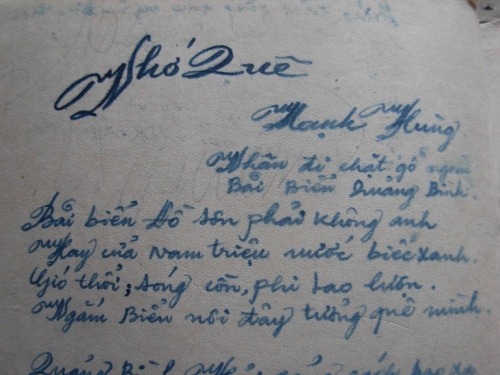 Nhớ Quê
Mạnh Hùng.
Nhân đi chặt gỗ ngoài
Bải Biển Quảng Bình.
Bải biển Đồ Sơn phải không anh
Hay cửa Nam triệu nước biếc xanh.
Gió thổi, sóng cồn, phi lao lượn.
Ngắm Biển nơi đây tưởng quê mình.
Quảng